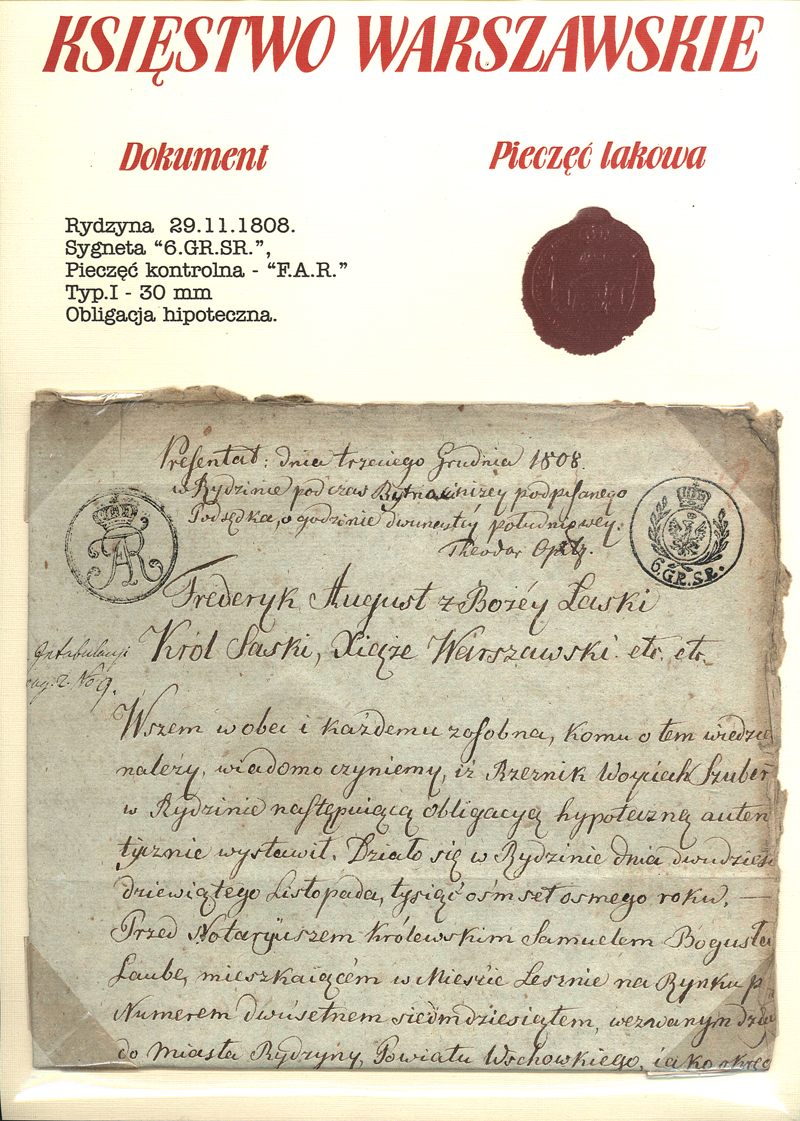 KSIĘSTWO WARSZAWSKIE
Dokument
Pieczęć lakowa
Rydzyna 29.11.1808.
Sygneta “6.GR.SR.”,
Pieczęć kontrolna - “F.A.R.”
Typ.I - 30 mm
Obligacja hipoteczna.
Presentat: dnia trzeciego Grudnia 1808.
w Rydzinie podczas niżey podpisanego
Podsędka, o godzinie dwunastey południowey:
Theodor
FAR
6.GR.SR.
Frederyk August z Bożéy Łaski
Król Saski, Xiąże Warszawski etc. etc.
No 9.
Wszem wobec i każdemu zosobna, komu o tem wiedzie
należy, wiadomo czyniemy, iż Rzeznik Woyciech Szuber
w Rydzinie następuiącą obligacyą hypoteczną auten
tycznie wystawił. Działo się w Rydzinie dnia dwudzieś
dziewiątego Listopada, tysiąć ośmset osmego roku. —
Przed Notaryuszem Królewskim Samuelem Bogusła
Laube, mieszkaiącém w Mieście Lesznie na Rynku p
Numerem dwusetnem siedmdziesiątem, wezwanym
do Miasta Rydzyny, Powiatu Wschowskiego, iako